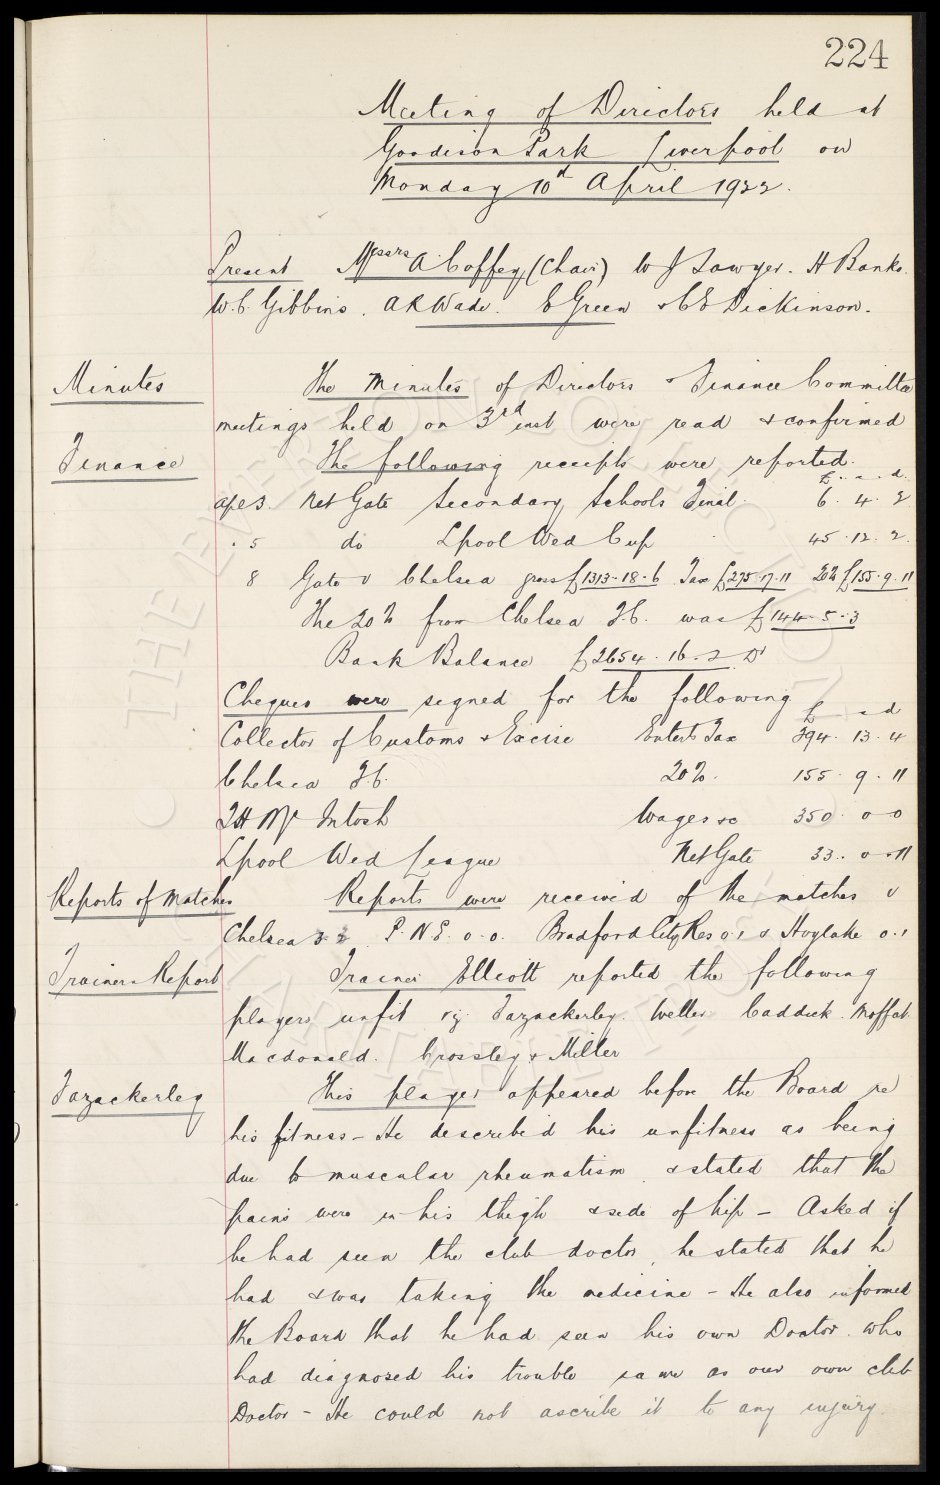 224
Meeting of Directors held at
Goodison Park Liverpool on
Monday 10th April 1922.
Present Messrs A Coffey (Chair) W J Sawyer. H Banks.
W.C. Gibbins. A R Wade. E Green & C E Dickinson.
Minutes The Minutes of Directors & Finance Committee
meetings held on 3rd inst were read & confirmed
Finance The following receipts were reported.
£ . s . d.
Apl 3. Net Gate Secondary Schools Final. 6. 4. 2
" 5 do Lpool Wed Cup 45. 12. 2.
8 Gate v Chelsea gross £1313-18-6 Tax £275.17.11 20% £155.9.11
The 20% from Chelsea F.C. was £144-5-3
Bank Balance £2654.16-2 Dr
Cheques were signed for the following
£ s d
Collector of Customs & Excise Enterts Tax 394. 13. 4
Chelsea F.C. 20%. 155. 9. 11
T H McIntosh Wages &c 350. 0-0
Lpool Wed League Net Gate 33. 0-11
Reports of Matches Reports were received of the matches v
Chelsea 3-2 P.N.E. 0-0. Bradford City Res 0.1 & Hoylake 0.1
Trainers Report Trainer Elliott reported the following
players unfit vz. Fazackerley. Weller Caddick. Moffat
Macdonald. Crossley & Miller
Fazackerley This player appeared before the Board re
his fitness - He described his unfitness as being
due to muscular rheumatism & stated that the
pains were in his thigh & side of hip - Asked if
he had seen the club doctor, he stated that he
had & was taking the medicine - He also informed
the Board that he had seen his own Doctor who
had diagnosed his trouble same as our own club
Doctor - He could not ascribe it to any injury.
© THE EVERTON COLLECTION CHARITABLE TRUST